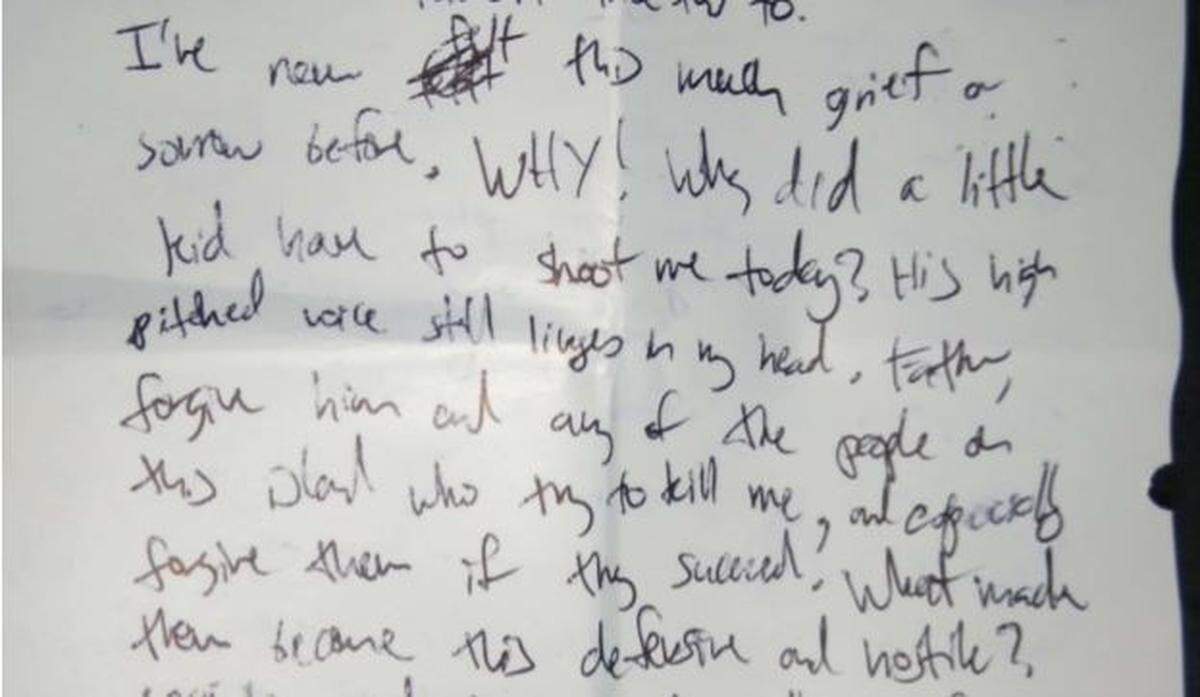 to.
I've never felt this much grief or
sorrow before. WHY! Why did a little
kid have to shoot me today? His high
pitched voice still lingers in my head. Father,
forgive him and any of the people on
this island who try to kill me, and especially
forgive them if they succeed. What made
them become this defensive and hostile?